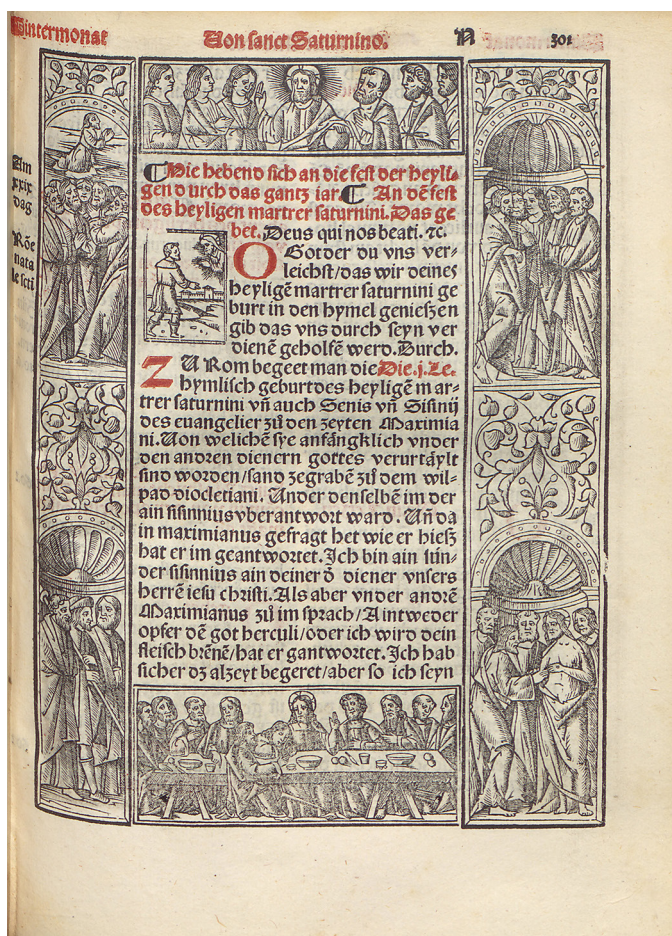 Wintermonat
Von sanct Saturnino.
N
301
Am
xxix
dag
Rōe
nata
le scti
Hie hebend sich an die fest der heyli-
gen durch das gantz iar. An dē fest
des heyligen martrer saturnini. Das ge
bet. Deus qui nos beati. ⁊c.
O Got der du vns ver-
leichst/das wir deines
heyligē martrer saturnini ge
burt in den hymel genieszen
gib das vns durch seyn ver
dienē geholfē werd. Durch.
ZU Rom begeet man die Die .j. Le.
hymlisch geburt des heyligē mar-
trer saturnini vn̄ auch Senis vn̄ Sisinij
des euangelier zů den zeyten Maximia
ni. Von welichē sye anfāngklich vnder
den andren dienern gottes verurtaylt
sind worden/sand zegrabē zů dem wil-
pad diocletiani. Under denselbē im der
ain sisinnius vberantwort ward. Un̄ da
in maximianus gefragt het wie er hiesz
hat er im geantwortet. Ich bin ain sün-
der sisinnius ain deiner d̄ diener vnsers
herrē iesu christi. Als aber vnder andrē
Maximianus zů im sprach/Aintweder
opfer dē got herculi/oder ich wird dein
fleisch brēnē/hat er gantwortet. Ich hab
sicher dz alzeyt begeret/aber so ich seyn